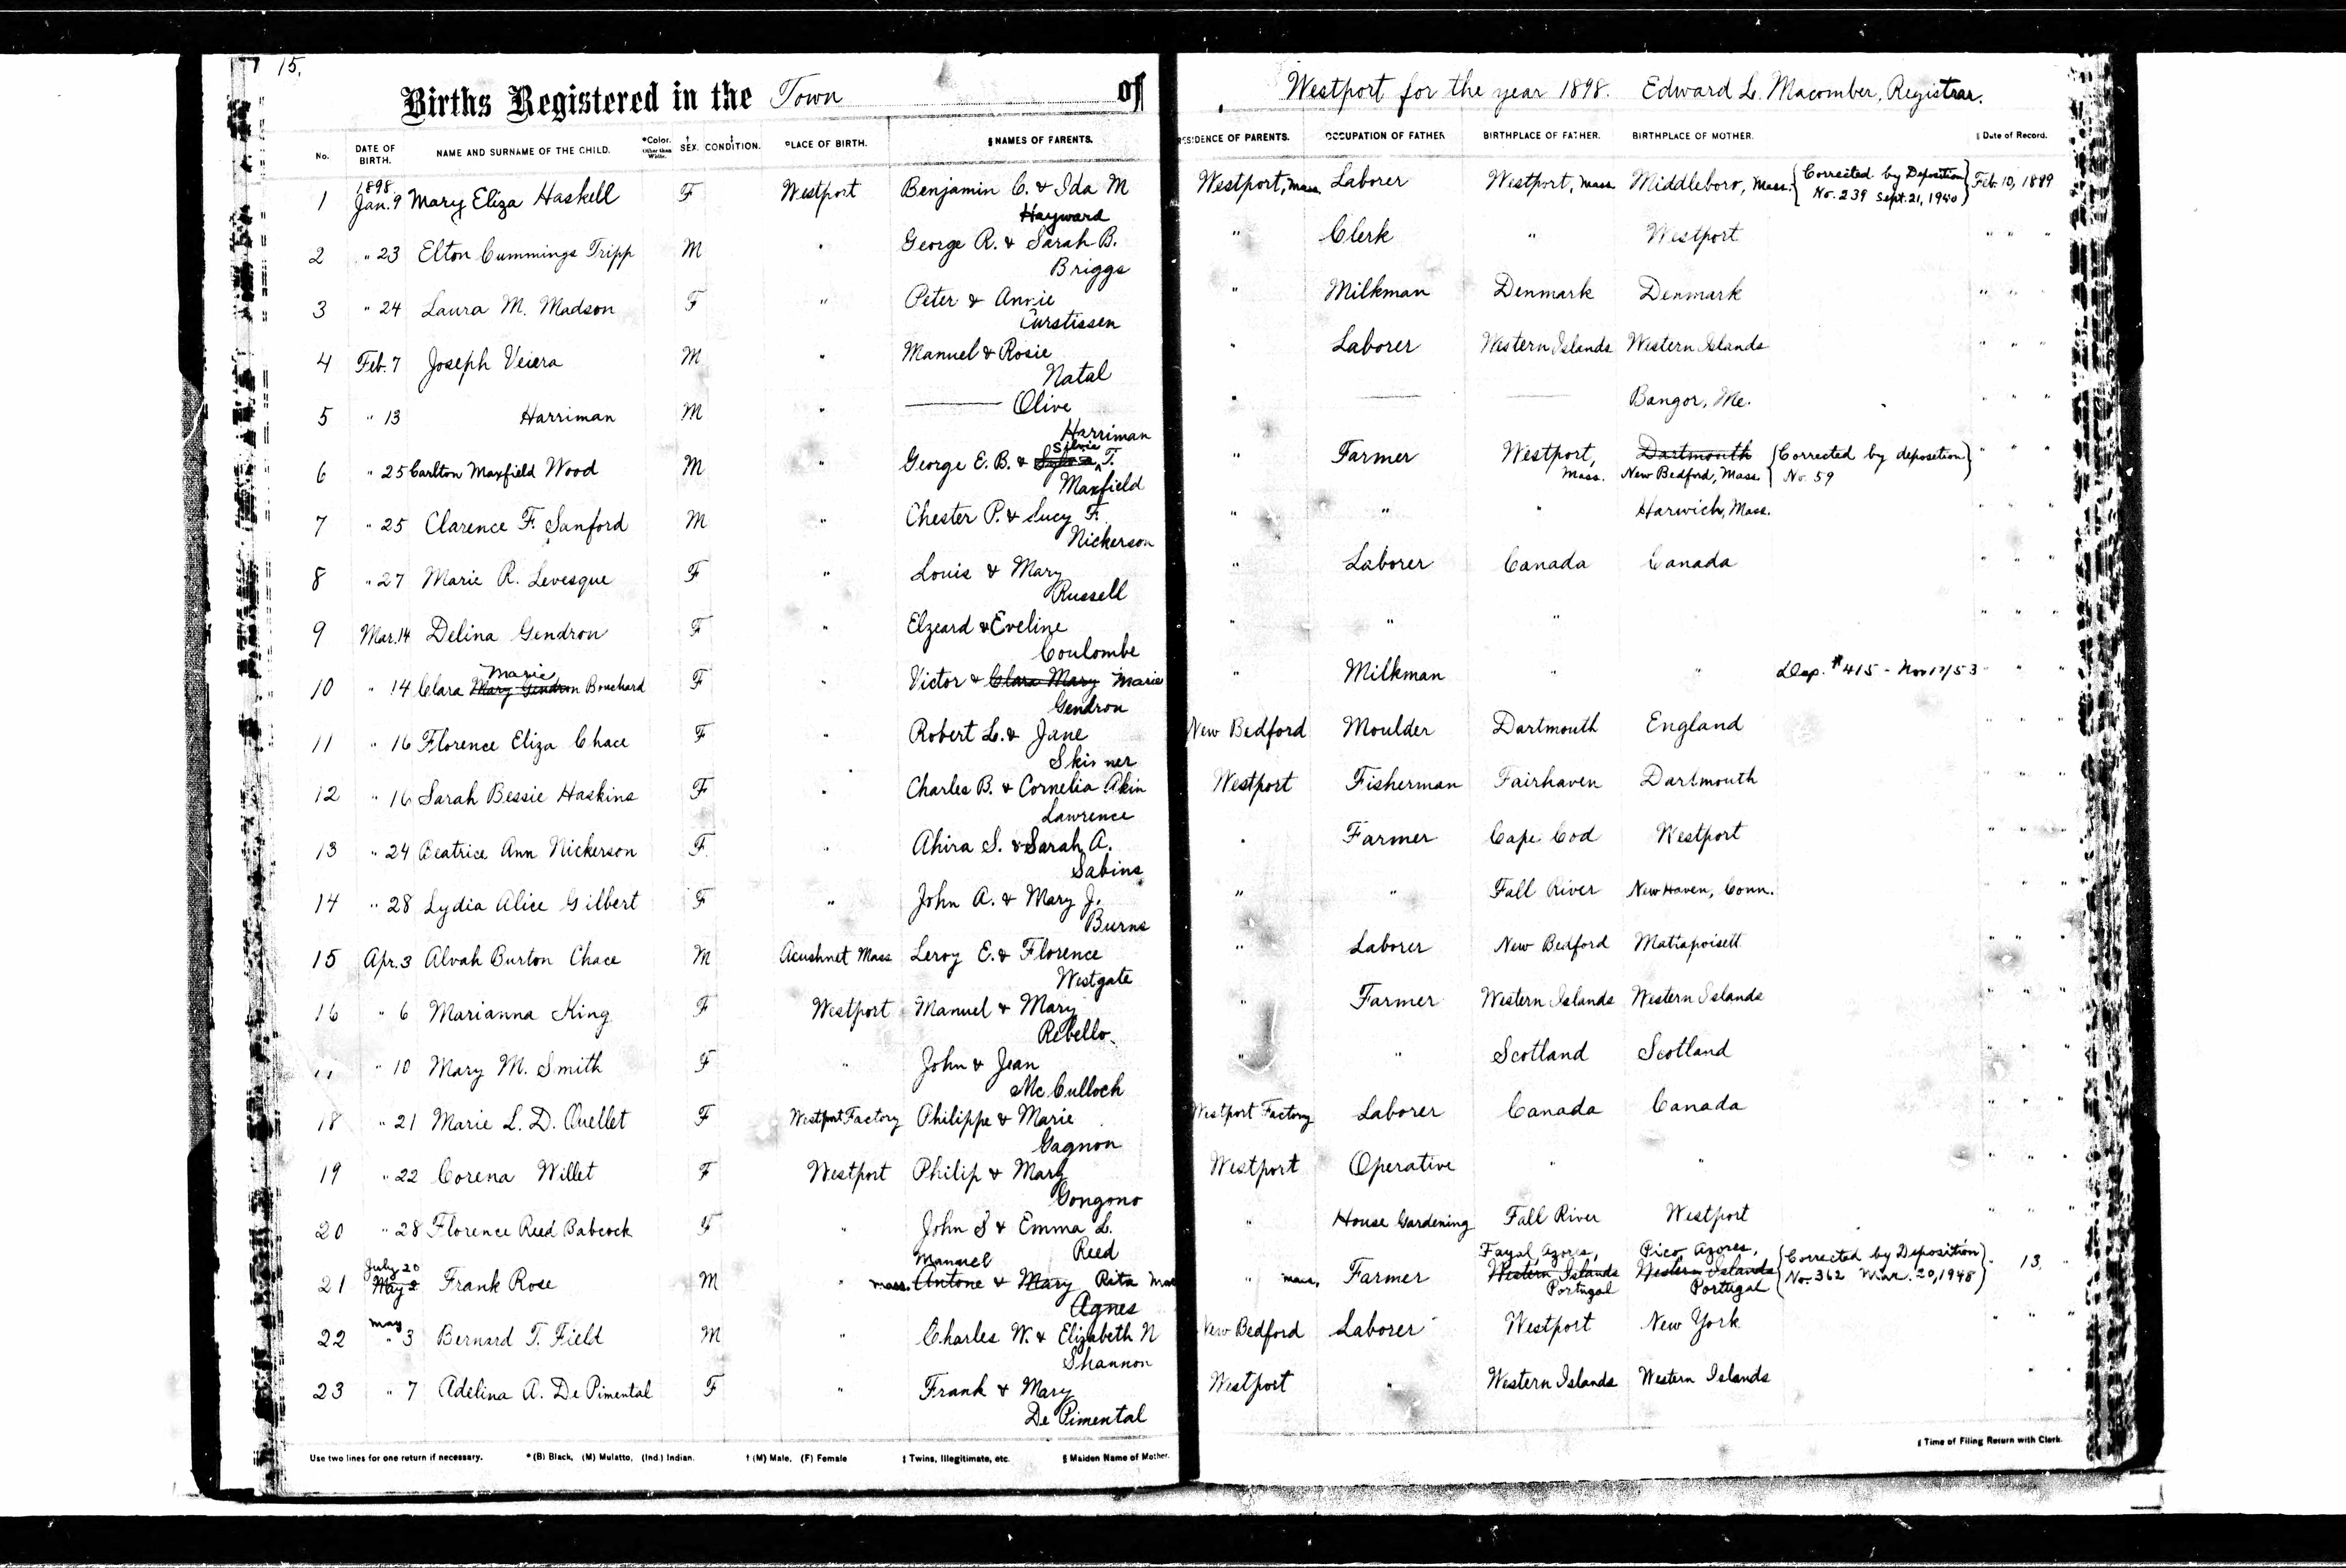 15.
Births Registered in the Town of Westport for the year 1898. Edward L. Macomber, Registrar.
No. DATE OF BIRTH. NAME AND SURNAME OF THE CHILD. *Color. Other than White. † SEX. ‡ CONDITION. PLACE OF BIRTH. §NAMES OF PARENTS. RESIDENCE OF PARENTS. OCCUPATION OF FATHER BIRTHPLACE OF FATHER. BIRTHPLACE OF MOTHER. ‖ Date of Record.
1898.
1 Jan. 9 Mary Eliza Haskell F Westport Benjamin C. & Ida M Westport, Mass. Laborer Westport, Mass. Middleboro, Mass. {Corrected by Deposition} Feb. 10, 1899
Hayward No. 239 Sept. 21, 1940
2 " 23 Elton Cummings Tripp M " George R. & Sarah B. " Clerk " Westport " " "
Briggs
3 " 24 Laura M. Madson F " Peter & Annie " Milkman Denmark Denmark " " "
Curstissen
4 Feb. 7 Joseph Veiera M " Manuel & Rosie " Laborer Western Islands Western Islands " " "
Natal
5 " 13 Harriman M " —— Olive " —— —— Bangor, Me. " " "
Harriman
Silvia
6 " 25 Carlton Maxfield Wood M " George E. B. & T. " Farmer Westport, Dartmouth {Corrected by deposetion} " " "
Maxfield Mass. New Bedford, Mass. No. 59
7 " 25 Clarence F. Sanford M " Chester P. & Lucy F. " " " Harwich, Mass. " " "
Nickerson
8 " 27 Marie R. Levesque F " Louis & Mary " Laborer Canada Canada " " "
Russell
9 Mar. 14 Delina Gendron F " Elzeard & Eveline " " " " " "
Coulombe
Marie
10 " 14 Clara Mary Gendron Bouchard F " Victor & Clara Mary Marie " Milkman " " Dep. #415 - Nov 17/53 " " "
Gendron
11 " 16 Florence Eliza Chace F " Robert L. & Jane New Bedford Moulder Dartmouth England " " "
Skinner
12 " 16 Sarah Bessie Haskins F " Charles B. & Cornelia Akin Westport Fisherman Fairhaven Dartmouth " " "
Lawrence
13 " 24 Beatrice Ann Nickerson F " Ahira S. & Sarah A. " Farmer Cape Cod Westport " " "
Sabins
14 " 28 Lydia Alice Gilbert F " John A. & Mary J. " " Fall River New Haven, Conn. " " "
Burns
15 Apr. 3 Alvah Burton Chace M Acushnet Mass Leroy E. & Florence " Laborer New Bedford Mattapoisett " " "
Westgate
16 " 6 Marianna King F Westport Manuel & Mary " Farmer Western Islands Western Islands " " "
Rebello.
" 10 Mary M. Smith F " John & Jean " " Scotland Scotland " " "
McCulloch
18 " 21 Marie L. D. Ouellet F Westport Factory Philippe & Marie Westport Factory Laborer Canada Canada " " "
Gagnon
19 " 22 Corena Willet F Westport Philip & Mary Westport Operative " " " " "
Gongono
20 " 28 Florence Reed Babcock F " John S & Emma L. " House Gardening Fall River Westport " " "
Reed
July 20 Manuel Fayal Azores, Pico Azores,
21 May 2 Frank Rose M " Mass. Antone & Mary Rita " Mass. Farmer Western Islands Western Islands {Corrected by Deposition} " 13, "
Agnes Portugal Portugal No. 362 Mar. 20, 1948
May
22 " 3 Bernard T. Field M " Charles W. & Elizabeth N New Bedford Laborer Westport New York " " "
Shannon
23 " 7 Adelina A. De Pimental F " Frank & Mary Westport " Western Islands Western Islands " "
De Pimental
Use two lines for one return if necessary. *(B) Black, (M) Mulatto, (Ind.) Indian. †(M) Male, (F) Female ‡ Twins, Illegitimate, etc. § Maiden Name of Mother. ‖ Time of Filing Return with Clerk.